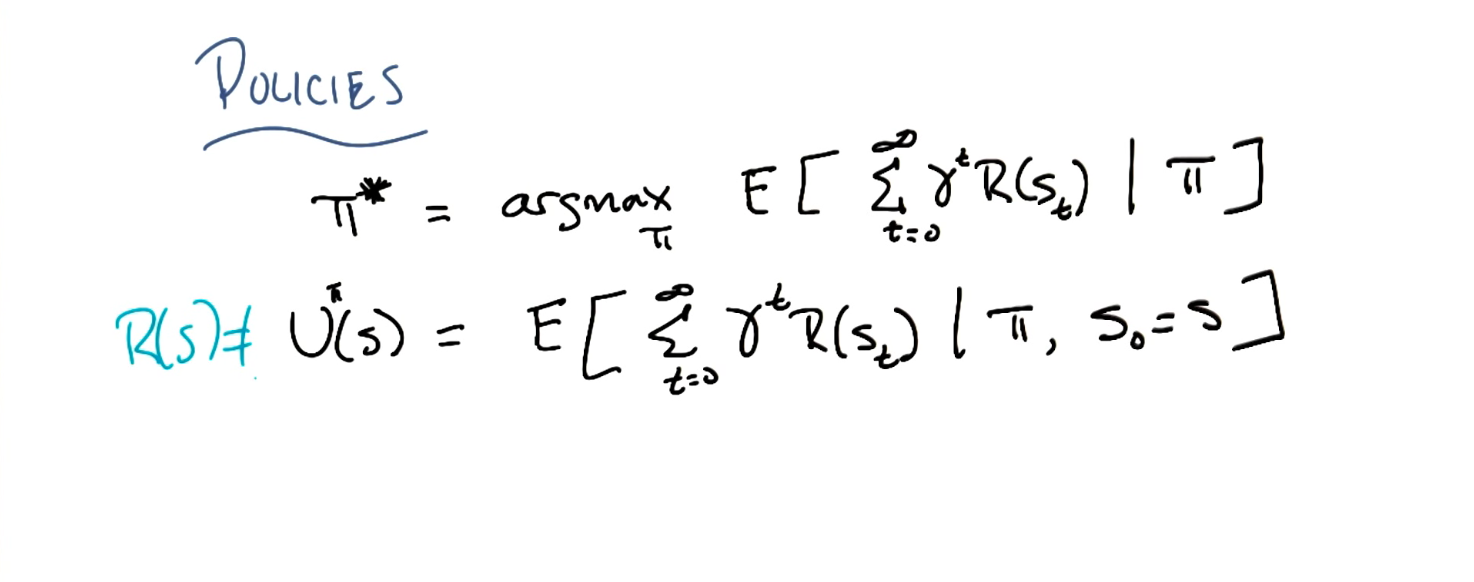 POLICIES
π* = argmax_π E[ ∑_{t=0}^{∞} γ^t R(s_t) | π ]
R(s) ≠ U^π(s) = E[ ∑_{t=0}^{∞} γ^t R(s_t) | π, s_0 = s ]